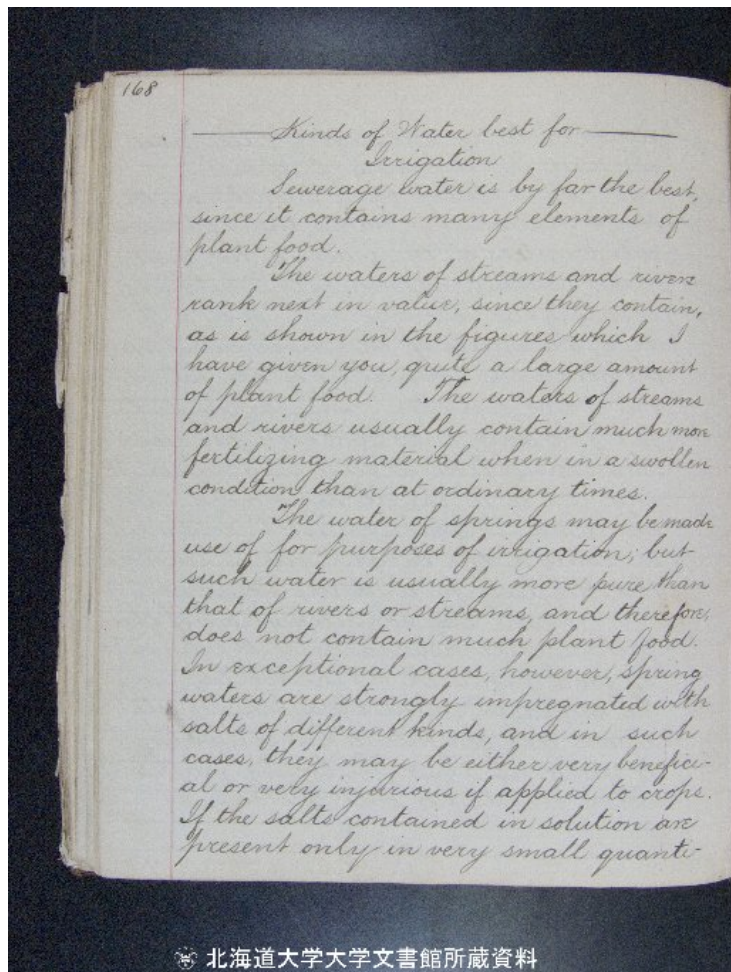 168
Kinds of Water best for
Irrigation
Sewerage water is by far the best,
since it contains many elements of
plant food.
The waters of streams and rivers
rank next in value, since they contain,
as is shown in the figures which I
have given you, quite a large amount
of plant food. The waters of streams
and rivers usually contain much more
fertilizing material when in a swollen
condition than at ordinary times.
The water of springs may be made
use of for purposes of irrigation; but
such water is usually more pure than
that of rivers or streams, and therefore,
does not contain much plant food.
In exceptional cases, however, spring
waters are strongly impregnated with
salts of different kinds, and in such
cases, they may be either very benefici-
al or very injurious if applied to crops.
If the salts contained in solution are
present only in very small quanti-
北海道大学大学文書館所蔵資料